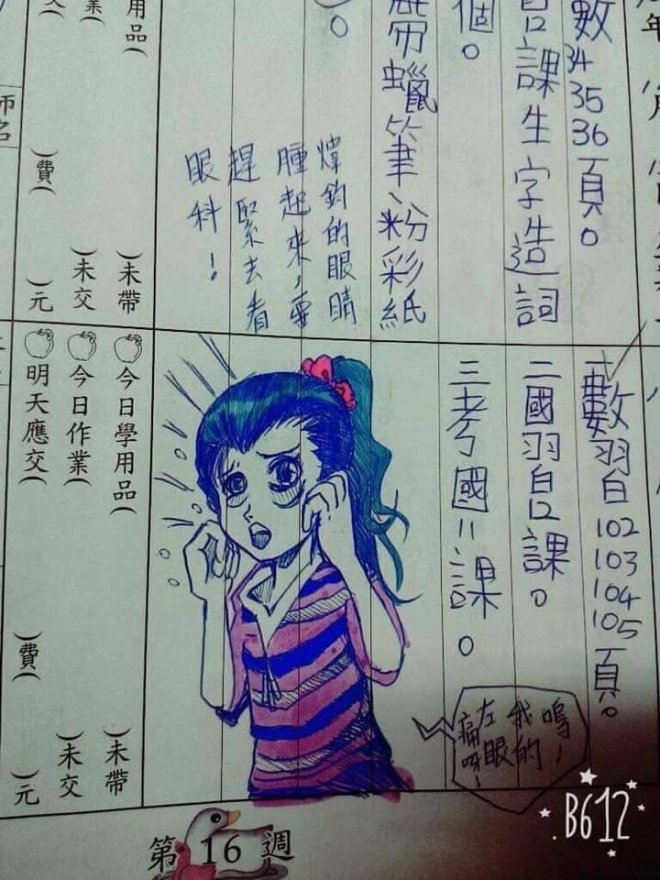 數34 35 36頁。
課生字造詞
個。
蠟筆、粉彩紙
。
煒鈞的眼睛
腫起來，要
趕緊去看
眼科！
用品）
未帶
業）
未交
交）
（費）
元
師
名
一數習102 103 104 105頁。
二國習課。
三考國 課。
嗚！
我的
左眼
痛
今日學用品）
未帶
今日作業）
未交
明天應交）
（費）
元
第 16 週
B612